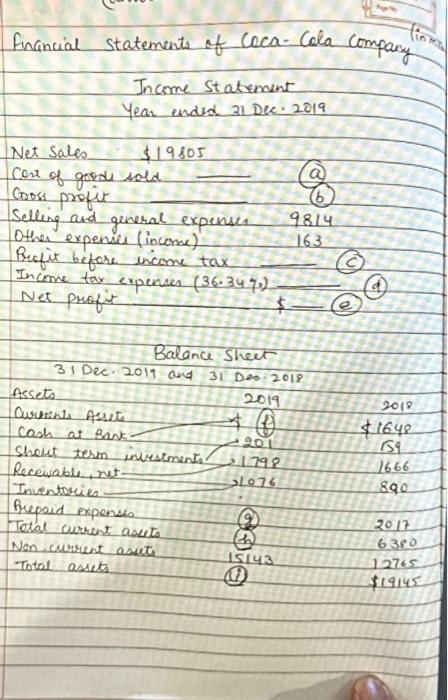 Financial Statements of Coca-Cola Company (in
Income Statement
Year ended 31 Dec. 2019
Net Sales $19805
Cost of goods sold (a)
Gross profit (b)
Selling and general expenses 9814
Other expenses (income) 163
Profit before income tax (c)
Income tax expenses (36.34%) (d)
Net profit $ (e)
Balance Sheet
31 Dec. 2019 and 31 Dec. 2018
Assets 2019 2018
Currents Assets
Cash at Bank $ (f) $1648
Short term investments 201 159
Receivable, net 1798 1666
Inventories 1076 890
Prepaid expenses (g) 2017
Total current assets (h) 6380
Non current assets 15143 12765
Total assets (i) $19145